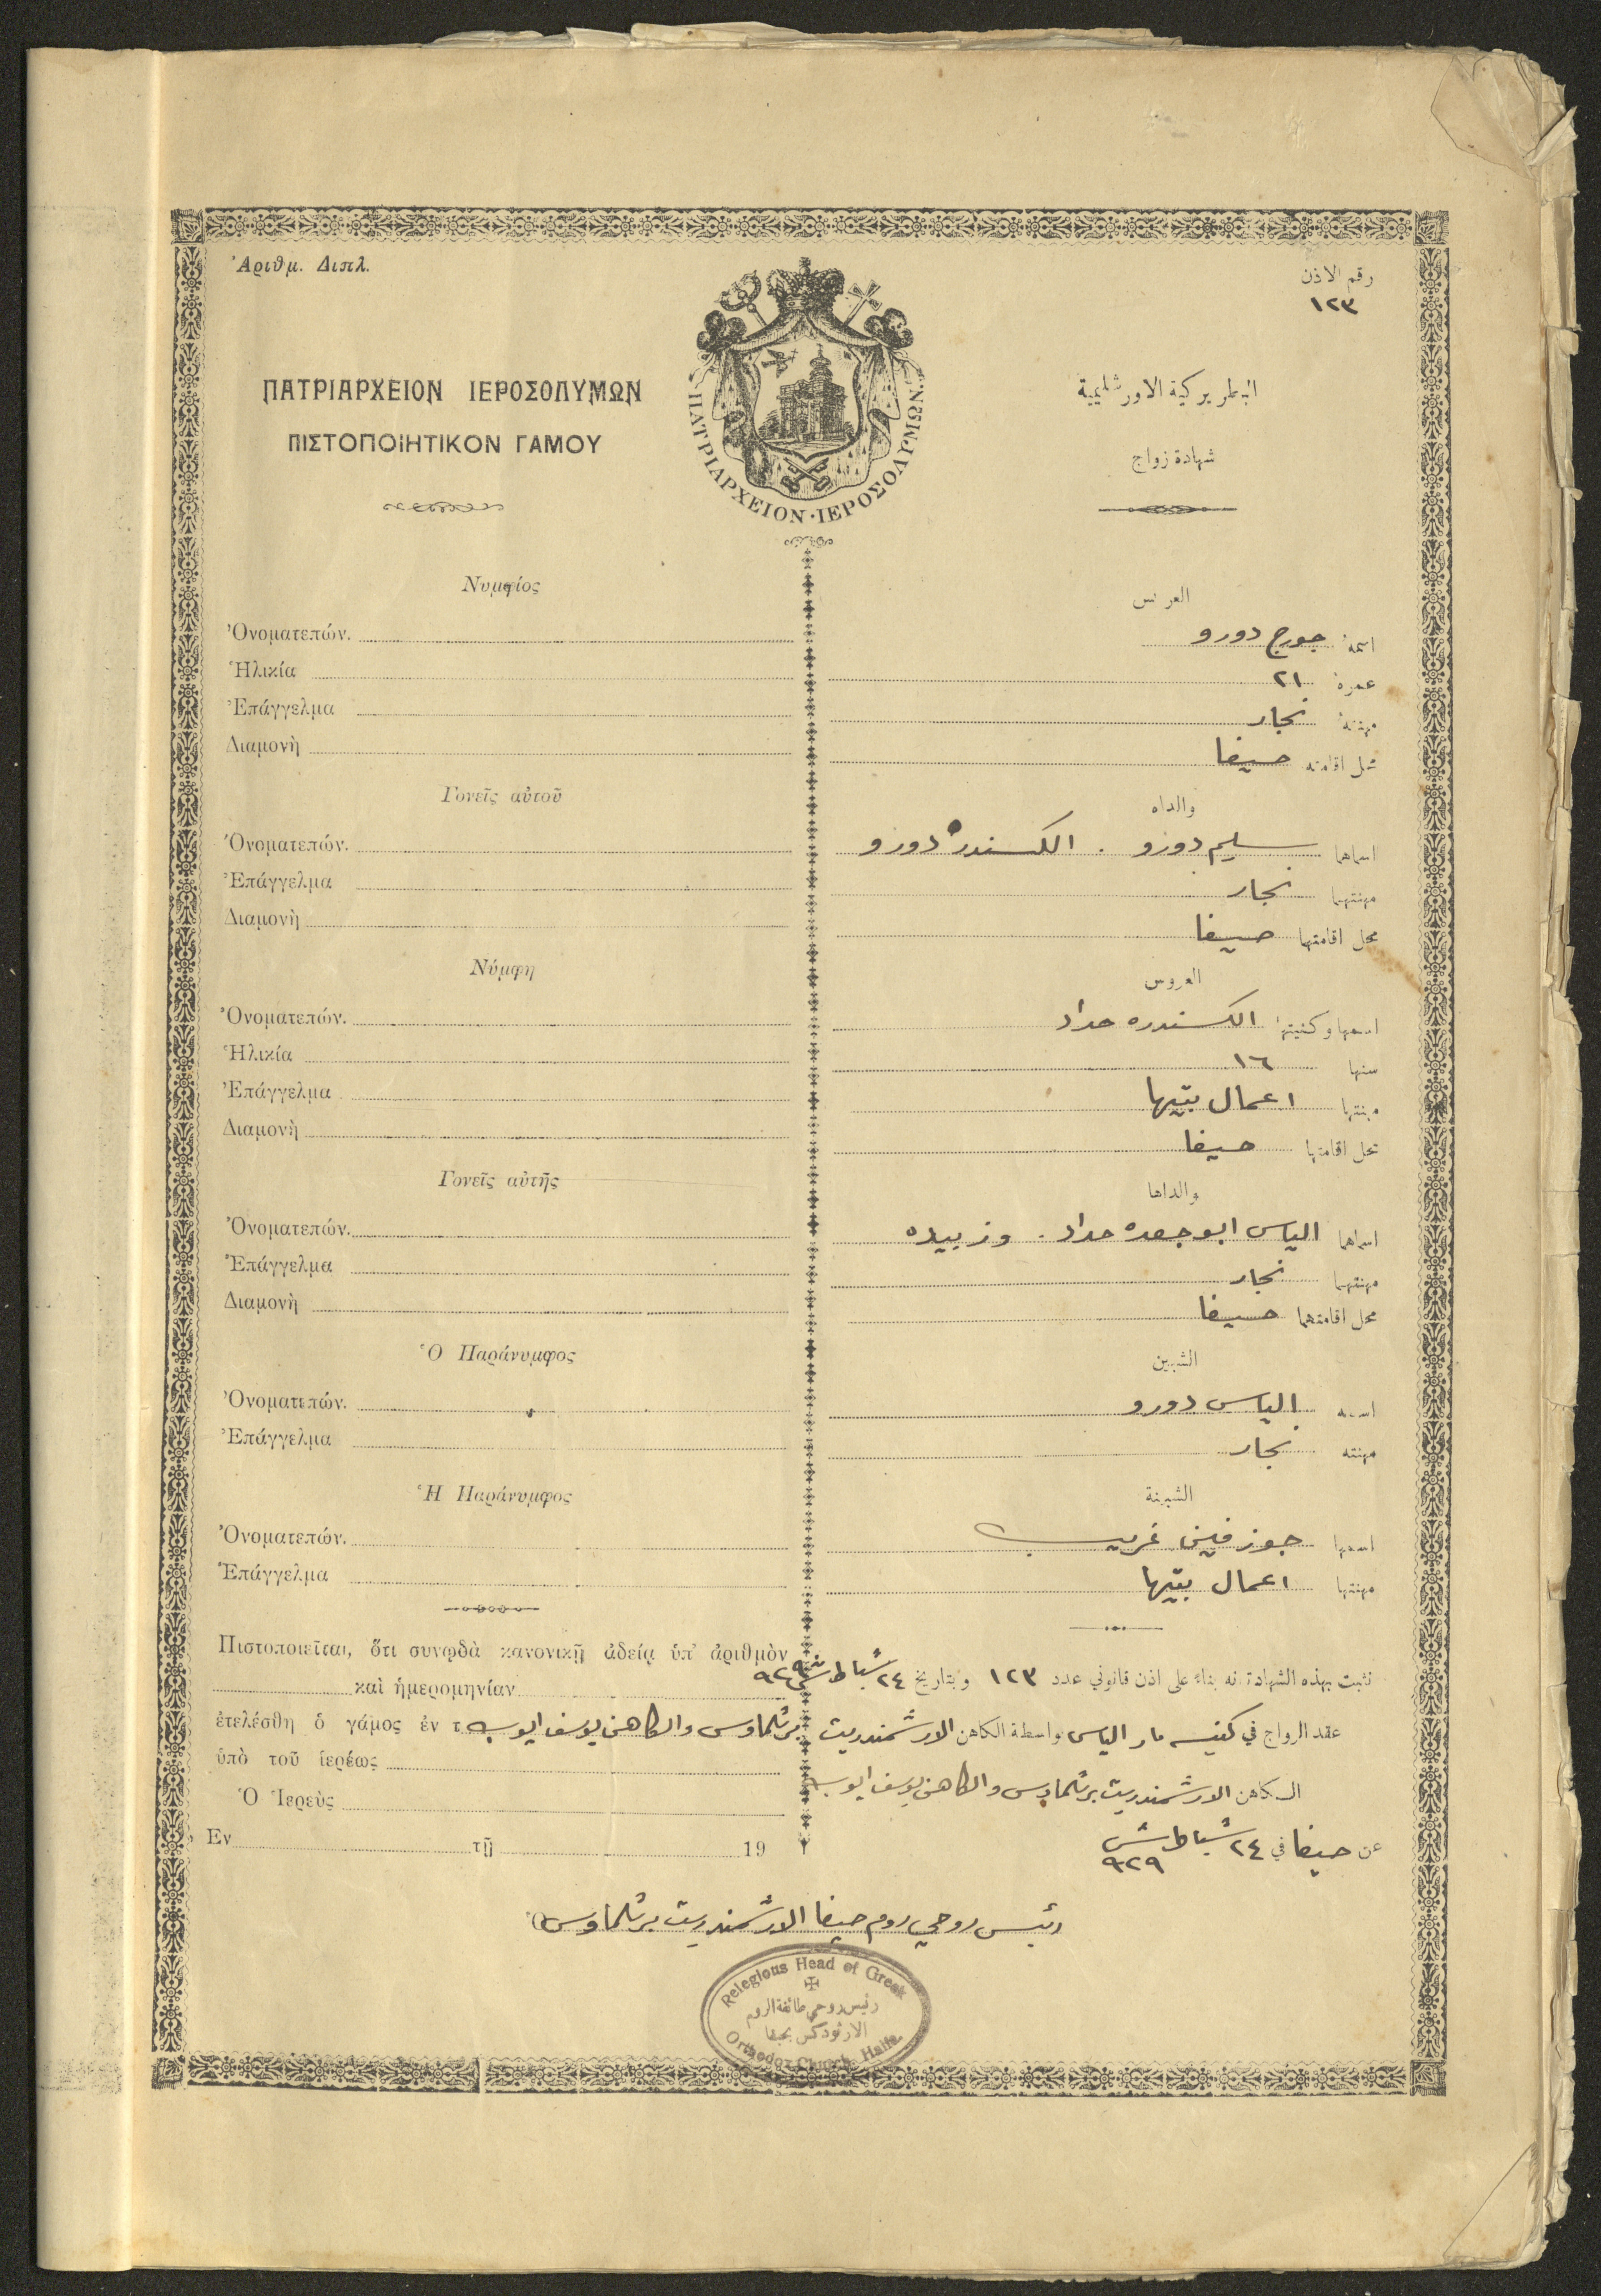 Ἀριθμ. Διπλ.
رقم الاذن
١٢٣
ΠΑΤΡΙΑΡΧΕΙΟΝ ΙΕΡΟΣΟΛΥΜΩΝ
ΠΙΣΤΟΠΟΙΗΤΙΚΟΝ ΓΑΜΟΥ
ΠΑΤΡΙΑΡΧΕΙΟΝ·ΙΕΡΟΣΟΛΥΜΩΝ
البطريركية الاورشليمية
شهادة زواج
Νυμφίος
Ὀνοματεπών.
Ἡλικία
Ἐπάγγελμα
Διαμονὴ
Γονεῖς αὐτοῦ
Ὀνοματεπών.
Ἐπάγγελμα
Διαμονὴ
Νύμφη
Ὀνοματεπών.
Ἡλικία
Ἐπάγγελμα
Διαμονὴ
Γονεῖς αὐτῆς
Ὀνοματεπών.
Ἐπάγγελμα
Διαμονὴ
Ὁ Παράνυμφος
Ὀνοματεπών.
Ἐπάγγελμα
Ἡ Παράνυμφος
Ὀνοματεπών.
Ἐπάγγελμα
Πιστοποιεῖται, ὅτι συνῳδὰ κανονικῇ ἀδείᾳ ὑπ' ἀριθμὸν
καὶ ἡμερομηνίαν
ἐτελέσθη ὁ γάμος ἐν τ
ὑπὸ τοῦ ἱερέως
Ὁ Ἱερεὺς
Ἐν τῇ 19
العريس
اسمه جورج دورو
عمره ٢١
مهنته نجار
محل اقامته حيفا
والداه
اسماهما سليم دورو . الكسندره دورو
مهنتهما نجار
محل اقامتهما حيفا
العروس
اسمها وكنيتها الكسندره حداد
سنها ١٦
مهنتها اعمال بيتها
محل اقامتها حيفا
والداها
اسماهما الياس ابو جعده حداد . وزبيده
مهنتهما نجار
محل اقامتهما حيفا
الشبين
اسمه الياس دورو
مهنته نجار
الشبينة
اسمها جوزفين غريب
مهنتها اعمال بيتها
نثبت بهذه الشهادة انه بناء على اذن قانوني عدد ١٢٣ وبتاريخ ٢٤ شباط ش ٩٢٩
عقد الزواج في كنيسه مار الياس بواسطة الكاهن الارشمندريت برثلماوس والكاهن يوسف ايوب
الكاهن الارشمندريت برثلماوس والكاهن يوسف ايوب
عن حيفا في ٢٤ شباط ش ٩٢٩
رئيس روحي روم حيفا الارشمندريت برثلماوس
Relegious Head of Greek
رئيس روحي طائفة الروم
الارثوذكس بحيفا
Orthodox Church Haifa.